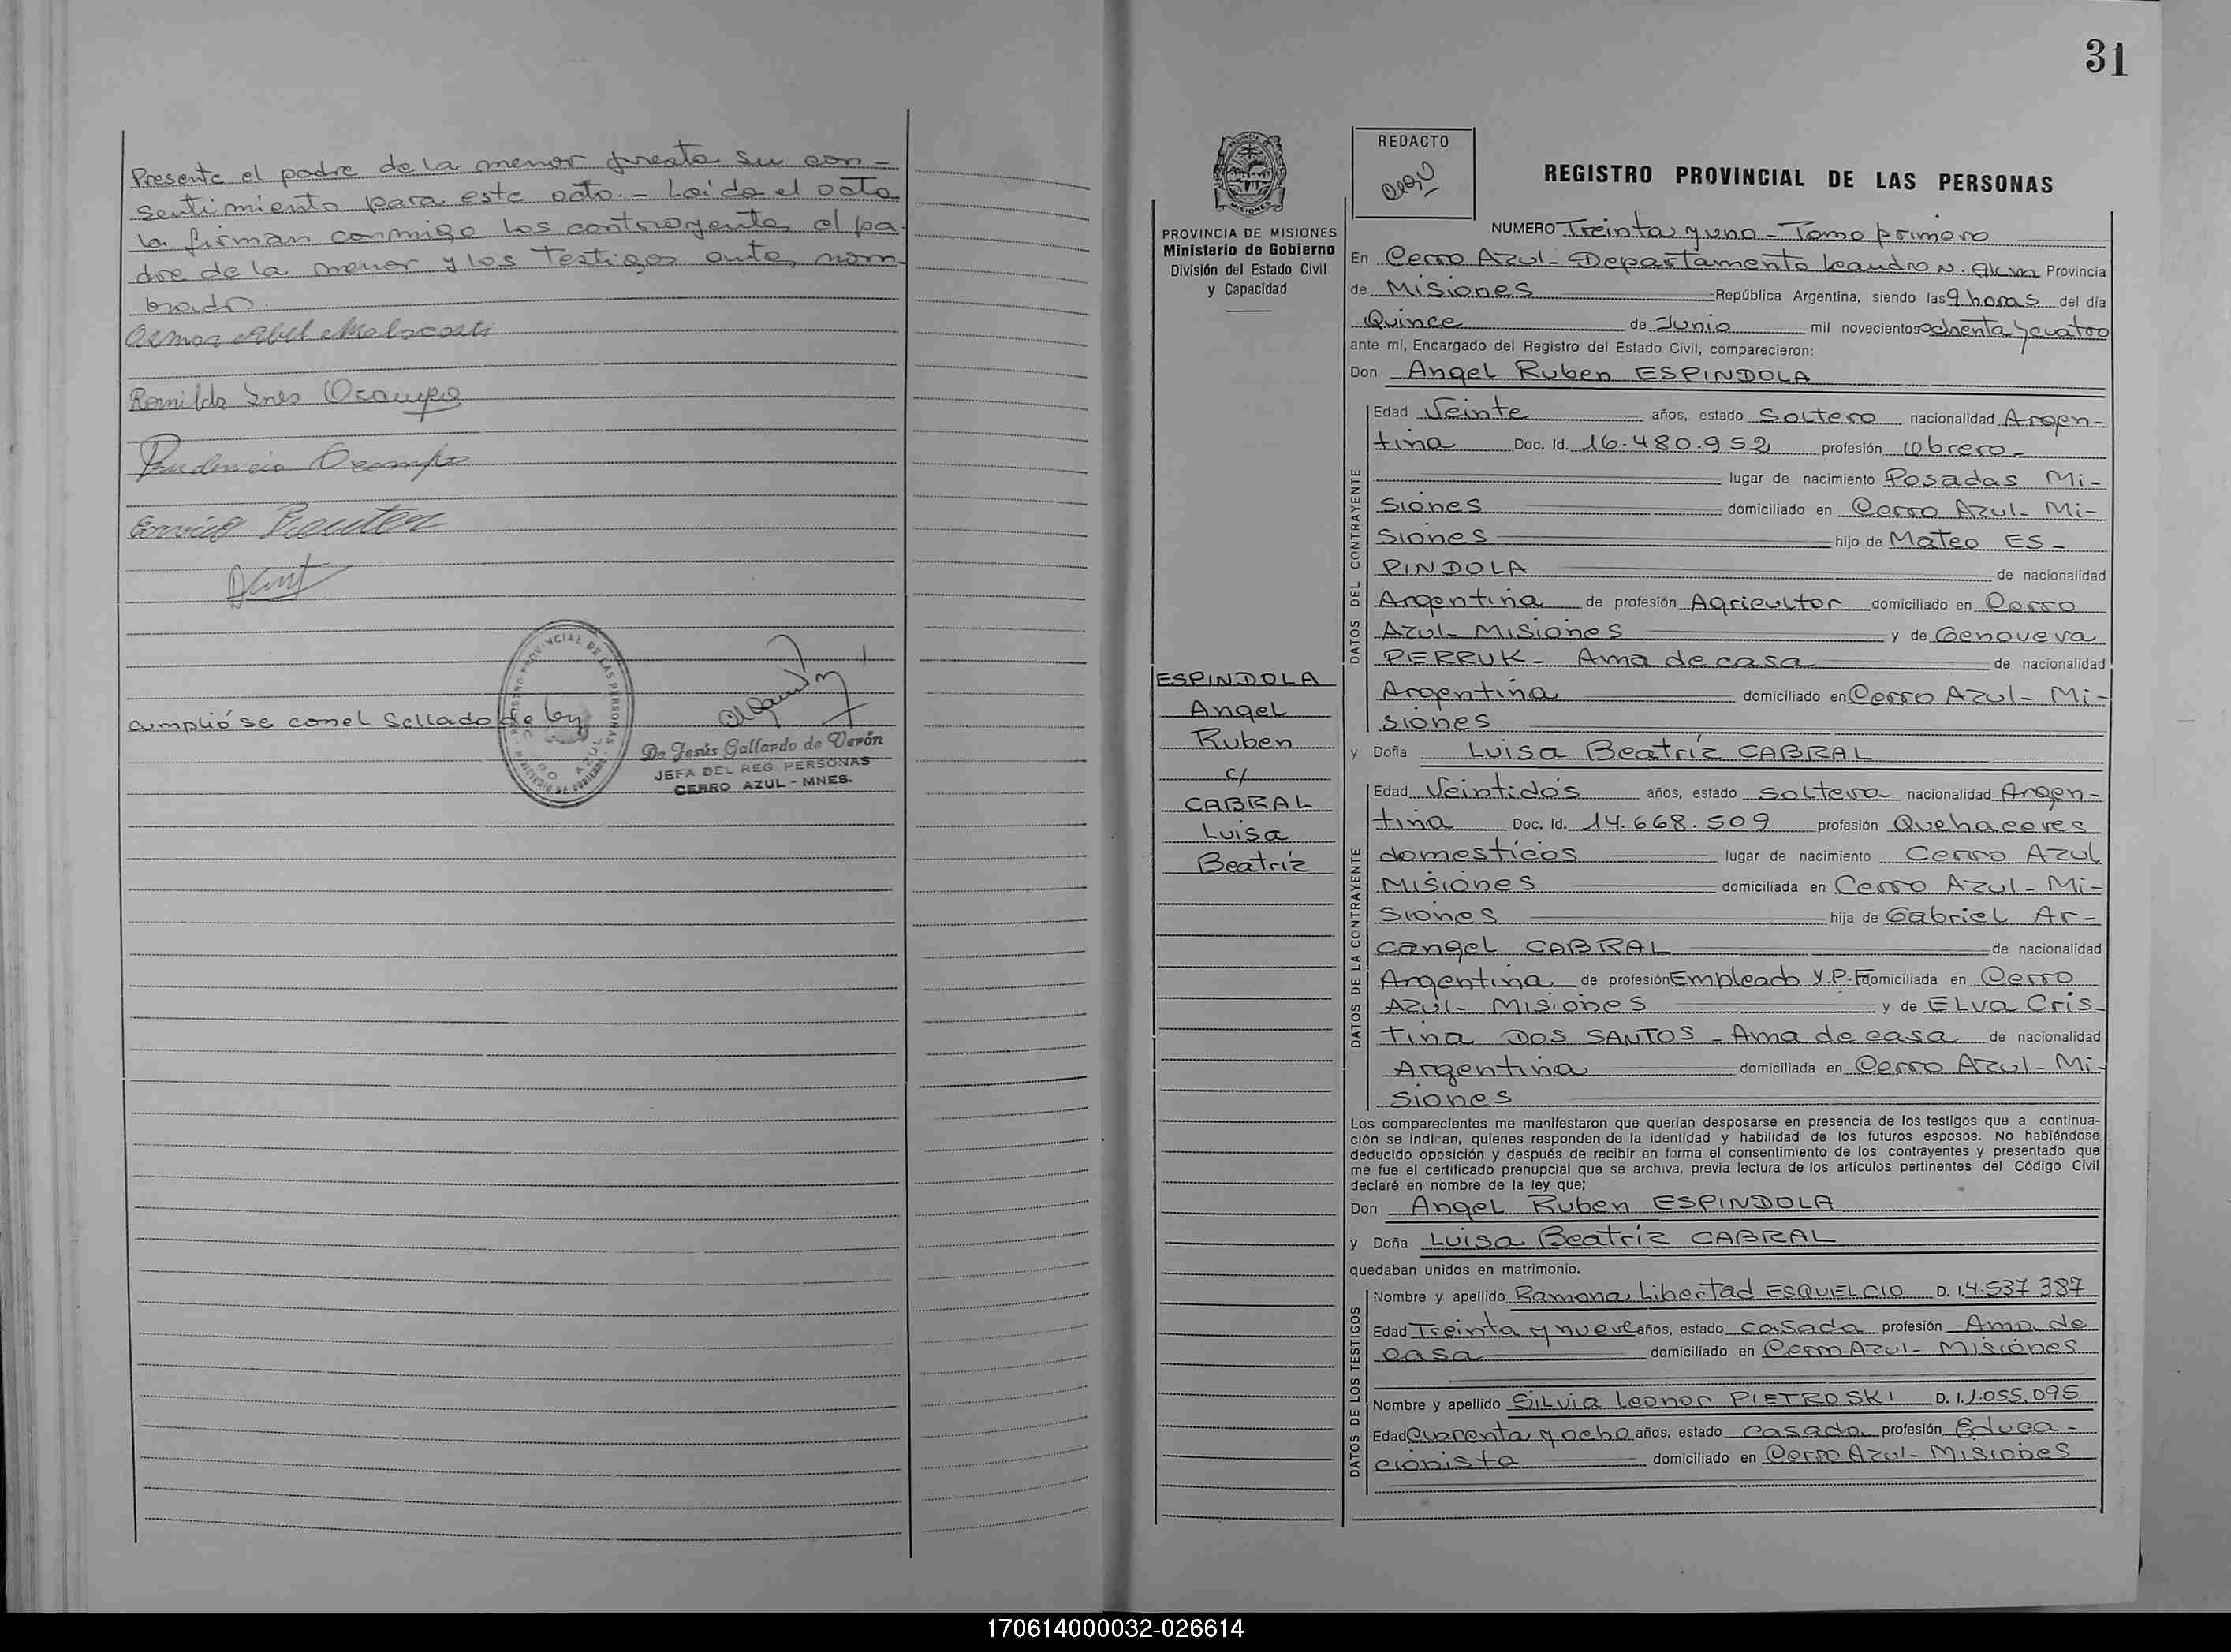 Presente el padre de la menor presta su con-
sentimiento para este acto.- Leída el acta
la firman conmigo los contrayente, el pa-
dre de la menor y los testigos ante, nom-
brado.
Abel
Romilda Ines Ocampo
Prudencio Ocampo
cumplióse con el Sellado de ley
REGISTRO PROVINCIAL DE LAS PERSONAS
De Jesús Gallardo de Verón
JEFA DEL REG. PERSONAS
CERRO AZUL - MNES.
31
PROVINCIA DE MISIONES
Ministerio de Gobierno
División del Estado Civil
y Capacidad
ESPINDOLA
Angel
Ruben
c/
CABRAL
Luisa
Beatriz
REDACTO
REGISTRO PROVINCIAL DE LAS PERSONAS
NUMERO Treinta y uno - Tomo primero
En Cerro Azul - Departamento Leandro N. Alem Provincia
de Misiones República Argentina, siendo las 9 horas del día
Quince de Junio mil novecientos ochenta y cuatro
ante mí, Encargado del Registro del Estado Civil, comparecieron:
Don Angel Ruben ESPINDOLA
DATOS DEL CONTRAYENTE
Edad Veinte años, estado Soltero nacionalidad Argen-
tina Doc. Id. 16.480.952 profesión Obrero-
lugar de nacimiento Posadas Mi-
siones domiciliado en Cerro Azul- Mi-
siones hijo de Mateo ES-
PINDOLA de nacionalidad
Argentina de profesión Agricultor domiciliado en Cerro
Azul- Misiones y de Genoveva
PERRUK- Ama de casa de nacionalidad
Argentina domiciliado en Cerro Azul- Mi-
siones
y Doña Luisa Beatriz CABRAL
DATOS DE LA CONTRAYENTE
Edad Veintidós años, estado soltera- nacionalidad Argen-
tina Doc. Id. 14.668.509 profesión Quehaceres
domesticos lugar de nacimiento Cerro Azul
Misiones domiciliada en Cerro Azul- Mi-
siones hija de Gabriel Ar-
cangel CABRAL de nacionalidad
Argentina de profesión Empleado Y.P.F domiciliada en Cerro
Azul- Misiones y de ELva Cris-
tina DOS SANTOS - Ama de casa de nacionalidad
Argentina domiciliada en Cerro Azul- Mi-
siones
Los comparecientes me manifestaron que querían desposarse en presencia de los testigos que a continua-
ción se indican, quienes responden de la identidad y habilidad de los futuros esposos. No habiéndose
deducido oposición y después de recibir en forma el consentimiento de los contrayentes y presentado que
me fue el certificado prenupcial que se archiva, previa lectura de los artículos pertinentes del Código Civil
declaré en nombre de la ley que;
Don Angel Ruben ESPINDOLA
y Doña Luisa Beatriz CABRAL
quedaban unidos en matrimonio.
DATOS DE LOS TESTIGOS
Nombre y apellido Ramona Libertad ESQUELCIO D. I. 4.537 387
Edad Treinta y nueve años, estado casada profesión Ama de
casa domiciliado en Cerro Azul- Misiones
Nombre y apellido Silvia Leonor PIETROSKI D. I. 1.055.095
Edad Cuarenta y ocho años, estado casada profesión Educa-
cionista domiciliado en Cerro Azul- Misiones
170614000032-026614